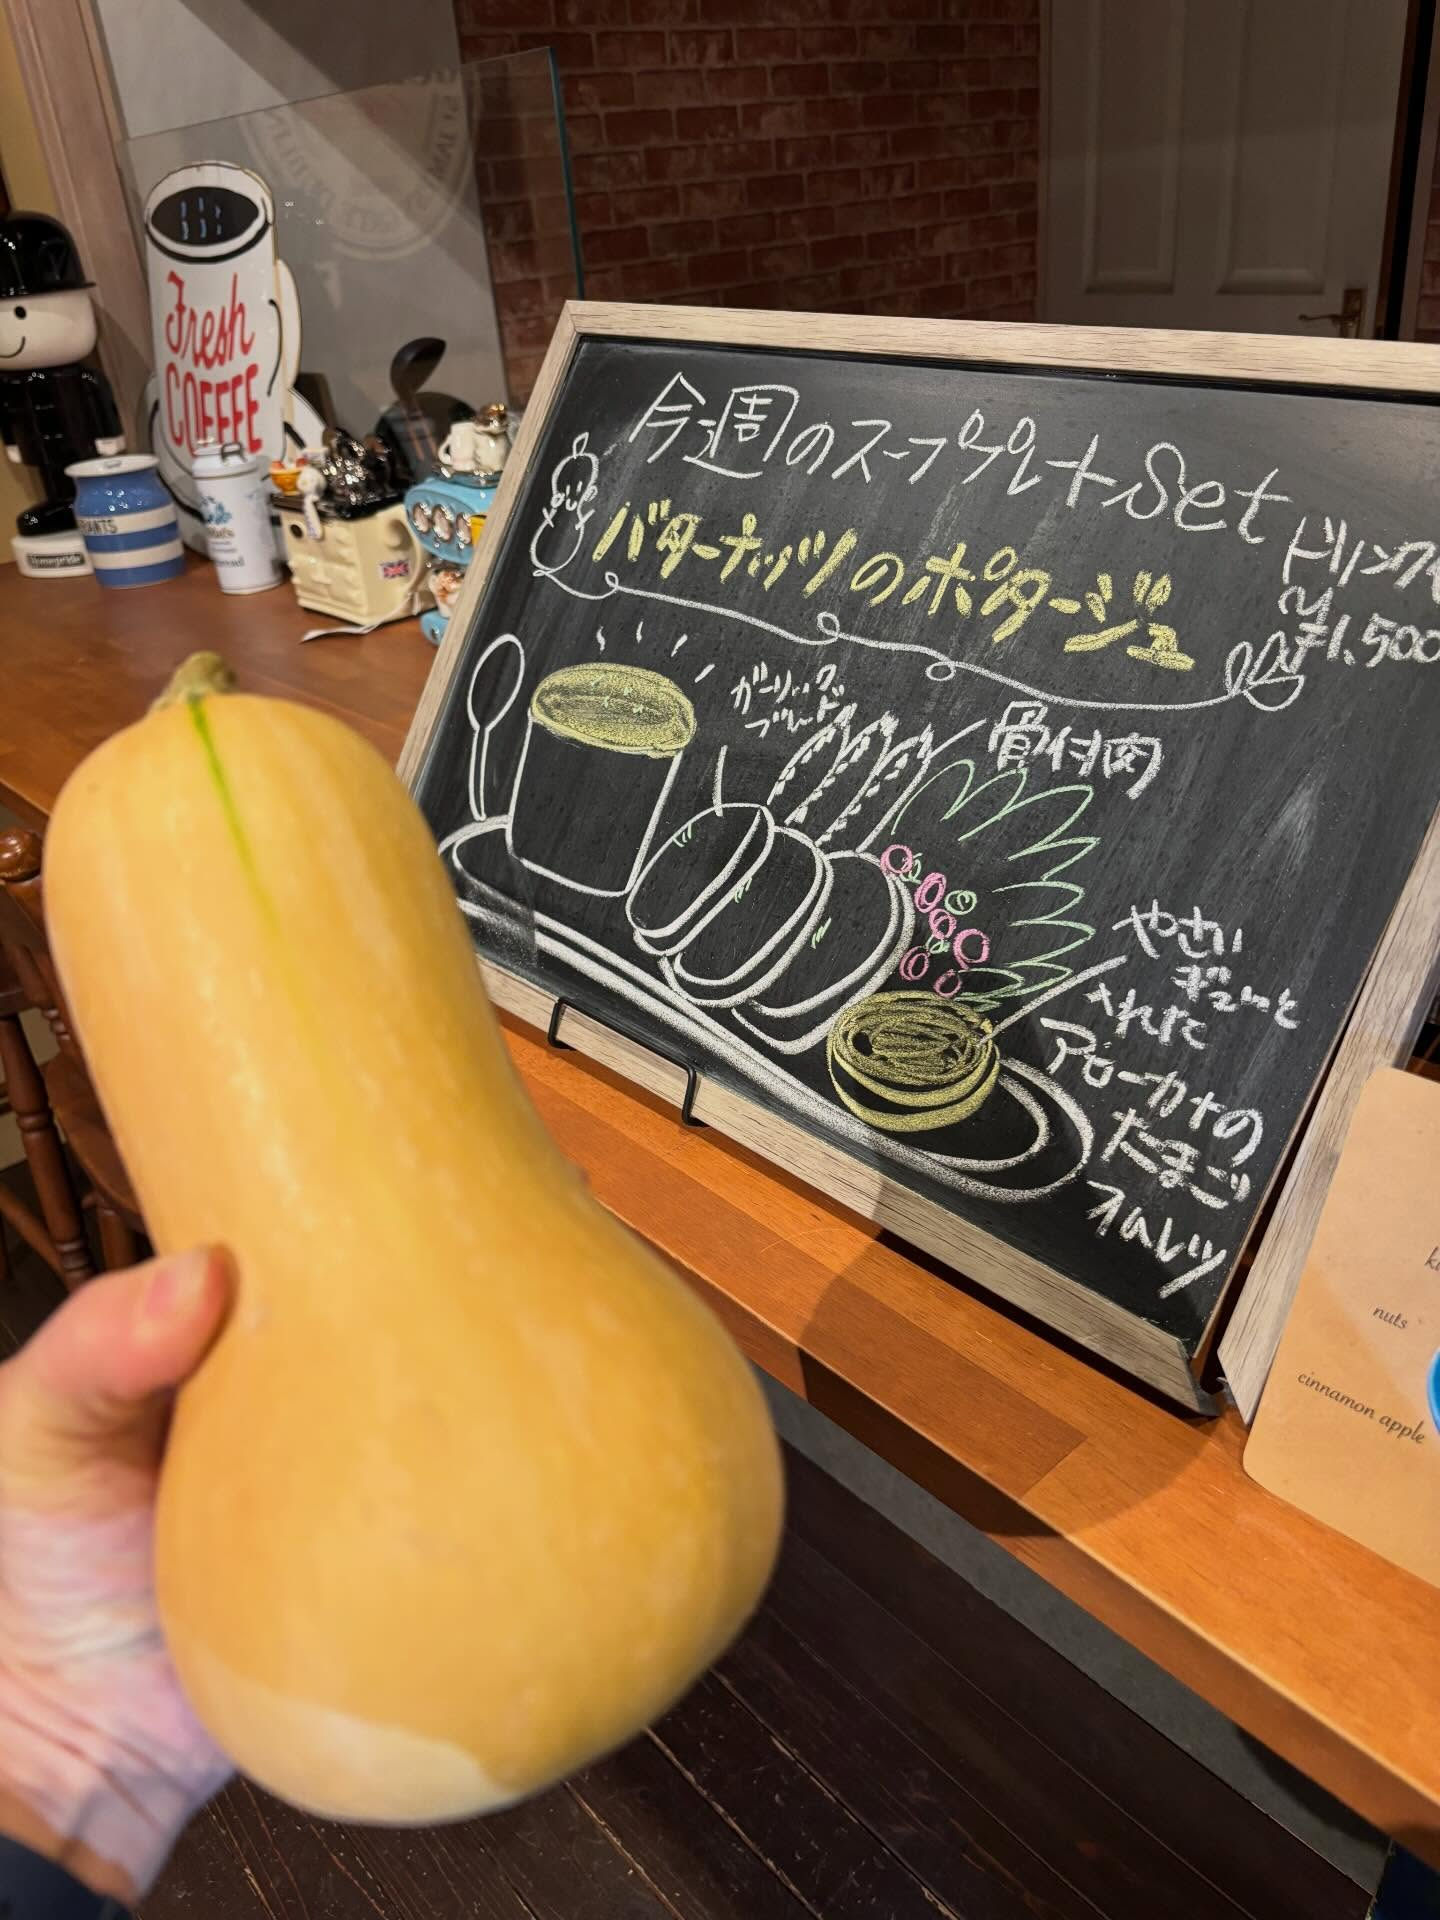 Fresh
COFFEE
Homepride
今週のスーププレートSet
バターナッツのポタージュ
ドリンク
¥1,500
ガーリック
ブレッド
骨付肉
やさい
ギューッと
入れた
アボーカナの
たまご
オムレツ
nuts
cinnamon apple